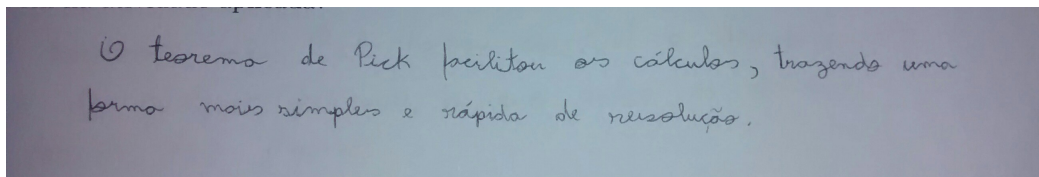 O teorema de Pick facilitou os cálculos, trazendo uma
forma mais simples e rápida de resolução.